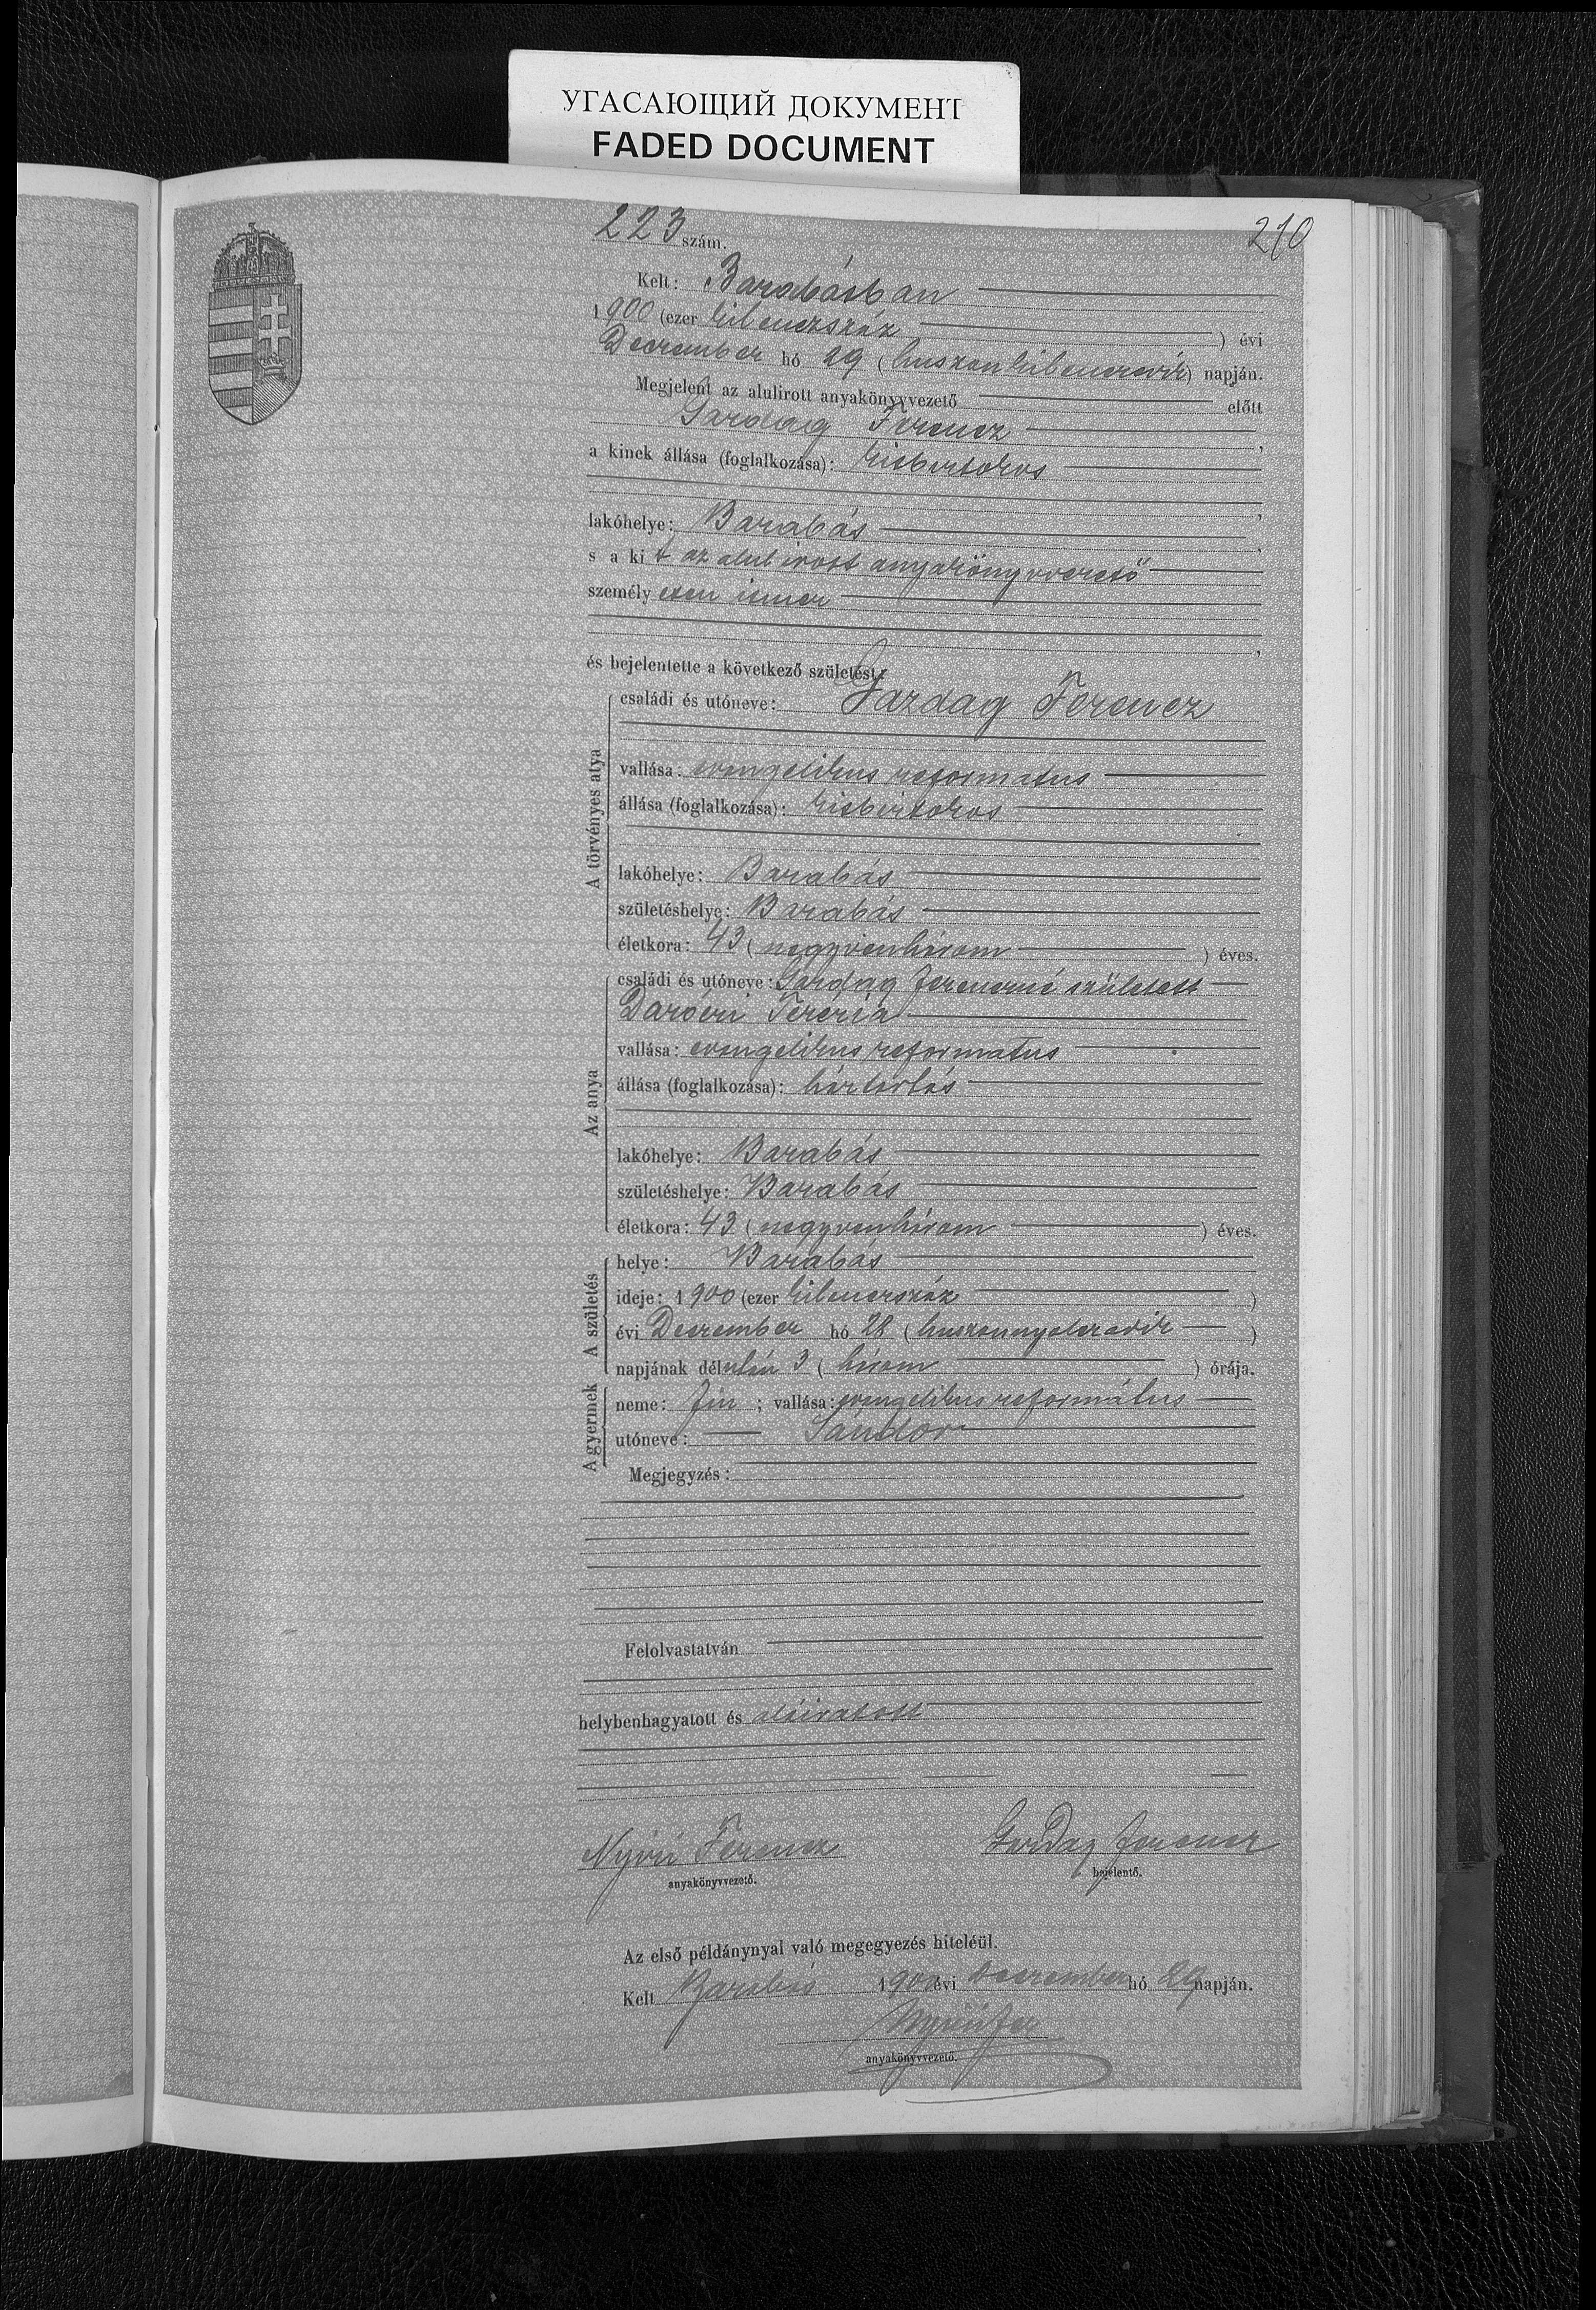 УГАСАЮЩИЙ ДОКУМЕНТ
FADED DOCUMENT
210
223 szám.
Kelt: Barabásban
1900 (ezer kilenczszáz ) évi
Deczember hó 29 (huszonkilenczedik) napján.
Megjelent az alulirott anyakönyvvezető előtt
Gazdag Ferencz,
a kinek állása (foglalkozása): kisbirtokos
,
lakóhelye: Barabás,
s a kit az alulirott anyakönyvvezető
személyesen ismer
,
és bejelentette a következő születést:
A törvényes atya
családi és utóneve: Gazdag Ferencz
vallása: evangelikus reformatus
állása (foglalkozása): kisbirtokos
lakóhelye: Barabás
születéshelye: Barabás
életkora: 43 (negyvenhárom ) éves.
Az anya
családi és utóneve: Gazdag Ferenczné született
Daróczi Terézia
vallása: evangelikus reformatus
állása (foglalkozása): háztartás
lakóhelye: Barabás
születéshelye: Barabás
életkora: 43 (negyvenhárom ) éves.
A születés
helye: Barabás
ideje: 1900 (ezer kilenczszáz )
évi Deczember hó 28 (huszonnyolczadik )
napjának délután 3 (három ) órája.
A gyermek
neme: fiu; vallása: evangelikus református
utóneve: Sándor
Megjegyzés:
Felolvastatván
helybenhagyatott és aláiratott
Nyíri Ferencz Gazdag Ferencz
anyakönyvvezető. bejelentő.
Az első példánynyal való megegyezés hiteléül.
Kelt Barabás 1900 évi Deczember hó 29 napján.
anyakönyvvezető.